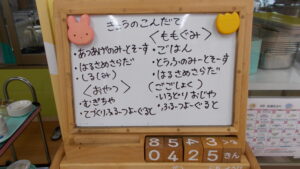 きょうのこんだて
<ももぐみ>
・あつあげのみーとそーす
・はるさめさらだ
・しる(みそ)
<おやつ>
・むぎちゃ
・てづくりふるーつよーぐると
・ごはん
・とうふのみーとそーす
・はるさめさらだ
(ごごしょく)
・いろとりおじや
・ふるーつよーぐると
8543
0425